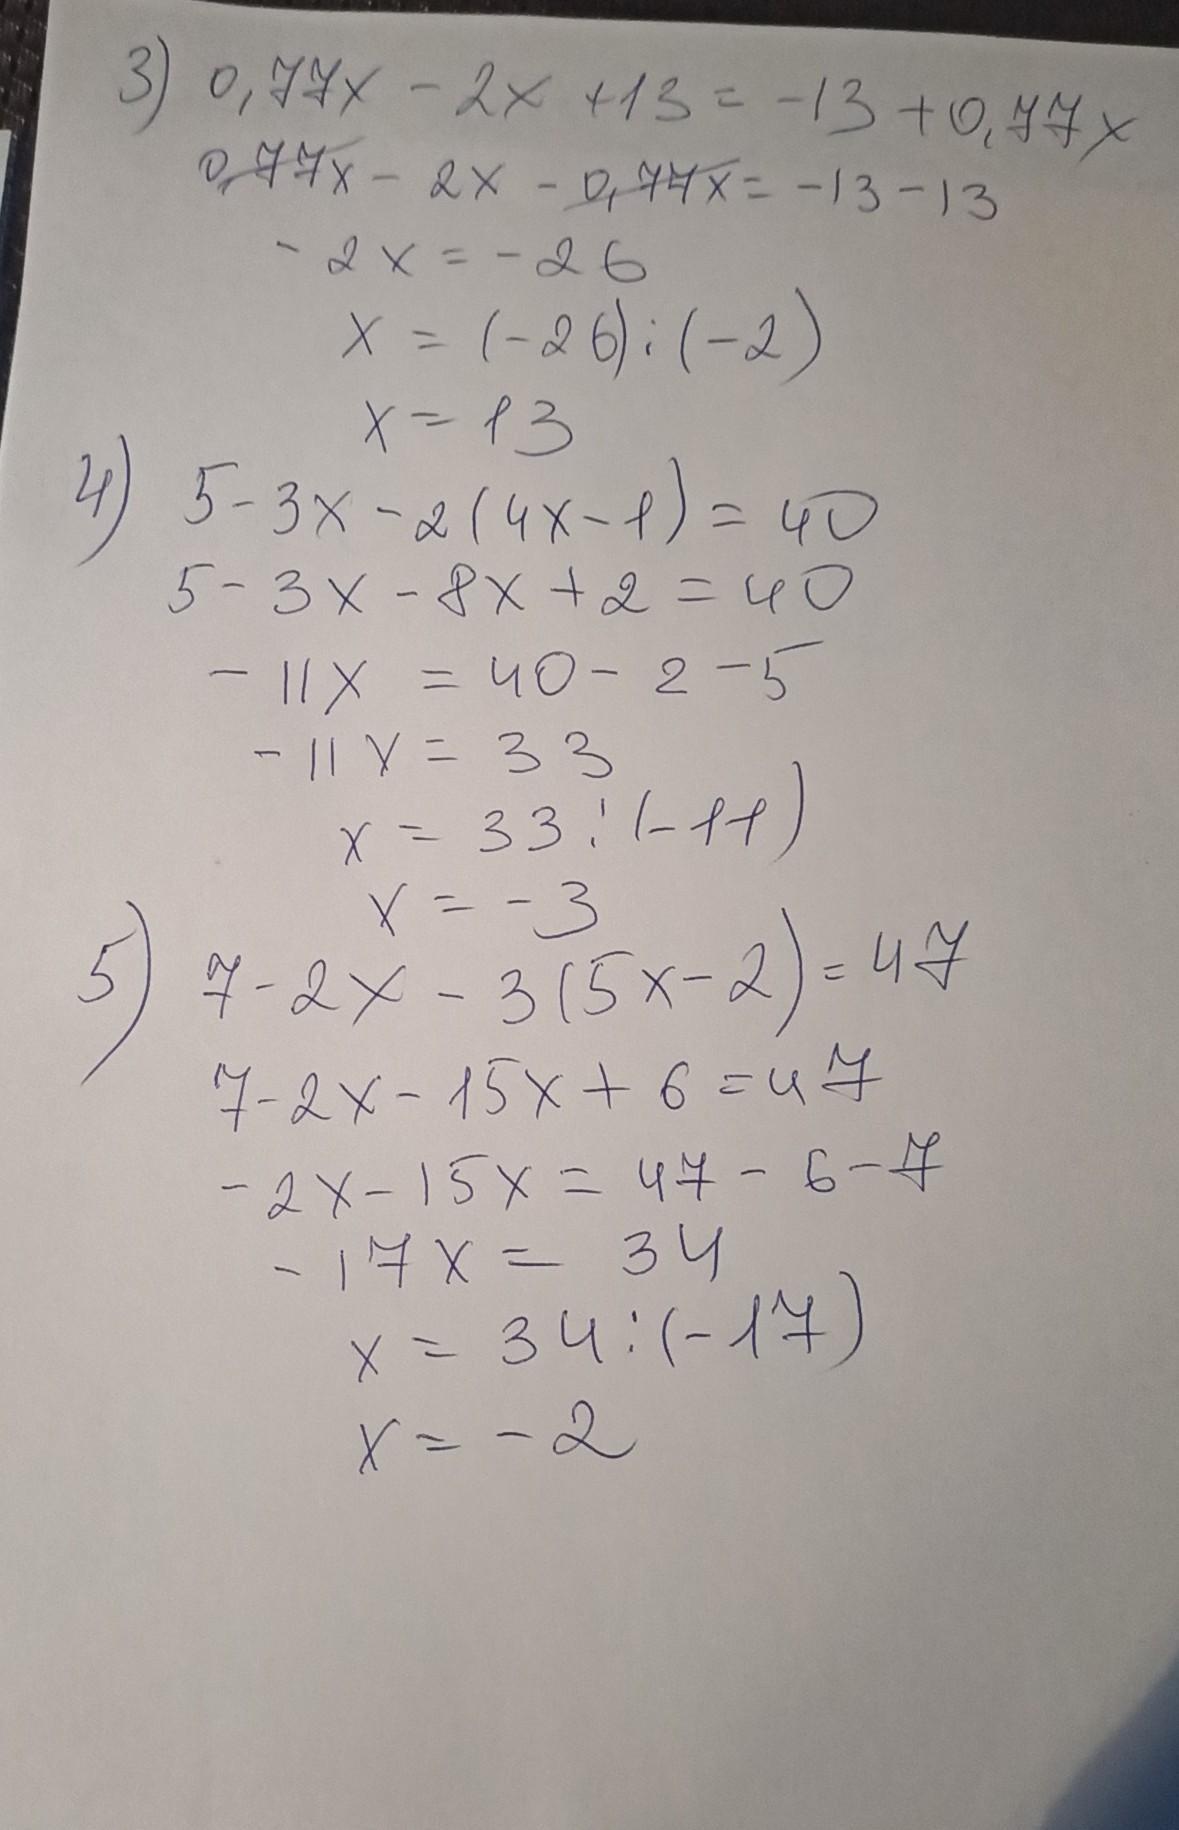 3) 0,77x - 2x + 13 = -13 + 0,77x
0,77x - 2x - 0,77x = -13 - 13
-2x = -26
x = (-26) : (-2)
x = 13
4) 5 - 3x - 2(4x - 1) = 40
5 - 3x - 8x + 2 = 40
-11x = 40 - 2 - 5
-11x = 33
x = 33 : (-11)
x = -3
5) 7 - 2x - 3(5x - 2) = 47
7 - 2x - 15x + 6 = 47
-2x - 15x = 47 - 6 - 7
-17x = 34
x = 34 : (-17)
x = -2